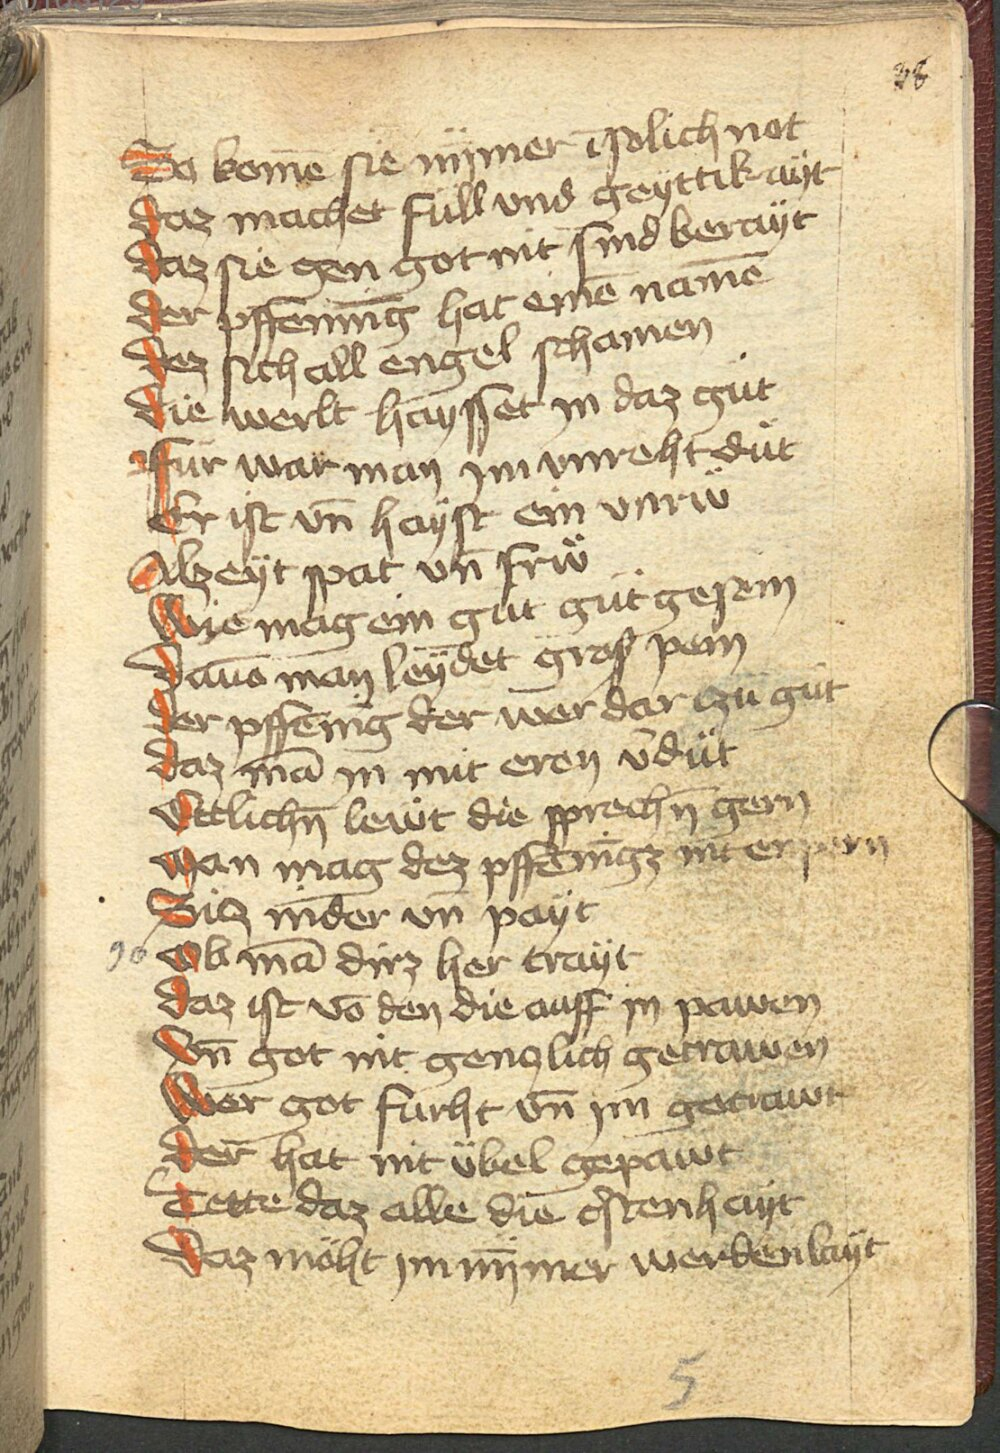 38
So komē sie nÿmer ī solich not
daz machet full vnd geyttikaÿt
daz sie gen got nit sind beraÿt
der pffenning hat einē namē
dez sich all engel schamen
die werlt haÿsset in daz gut
fur war man im vnreht dut
Er ist vn̄ haÿst ein vnrw̏
Alzeÿt spat vn̄ frw̏
Wie mag ein gut gut gesein
Dauō man leÿdet groß pein
der pffenig der wer dar czu gut
daz mā in mit eren v̄dut
Ettlichn̄ lewt die sprechn̄ gern
man mag dez pffenigz nit enpern
Sitz nider vn̄ payt
90 Ob mā dirz her traÿt
daz ist vō den die auff in pawen
Vn̄ got nit genczlich getrawen
Wer got furht vn̄ im getrawt
der hat nit übel gepawt
Tette daz alle die cristenhaÿt
Daz möht im nÿmer werden laÿt
5